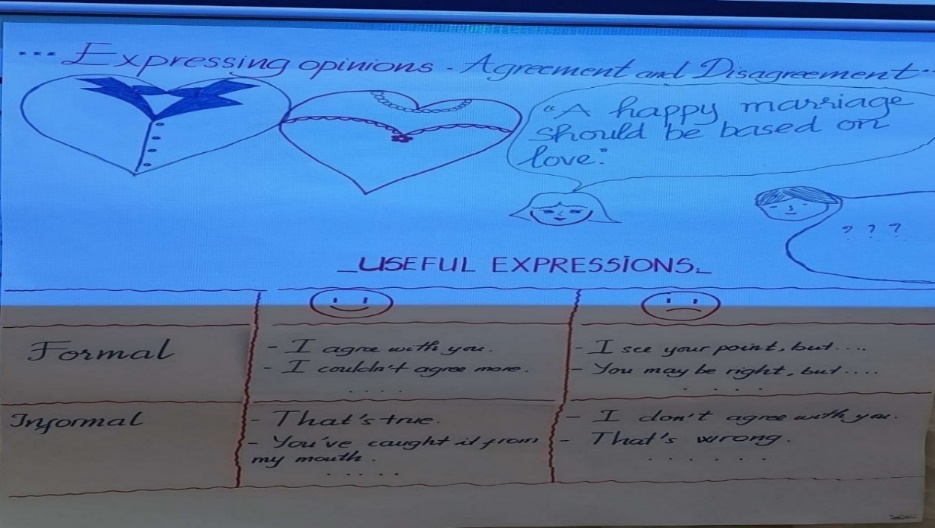 ... Expressing opinions - Agreement and Disagreement..
"A happy marriage
should be based on
love."
? ? ?
_USEFUL EXPRESSIONS_
Formal
- I agree with you.
- I couldn't agree more.
. . . .
- I see your point, but....
- You may be right, but....
. . . .
Informal
- That's true.
- You've caught it from
my mouth.
. . . . .
- I don't agree with you.
- That's wrong.
. . . . . .